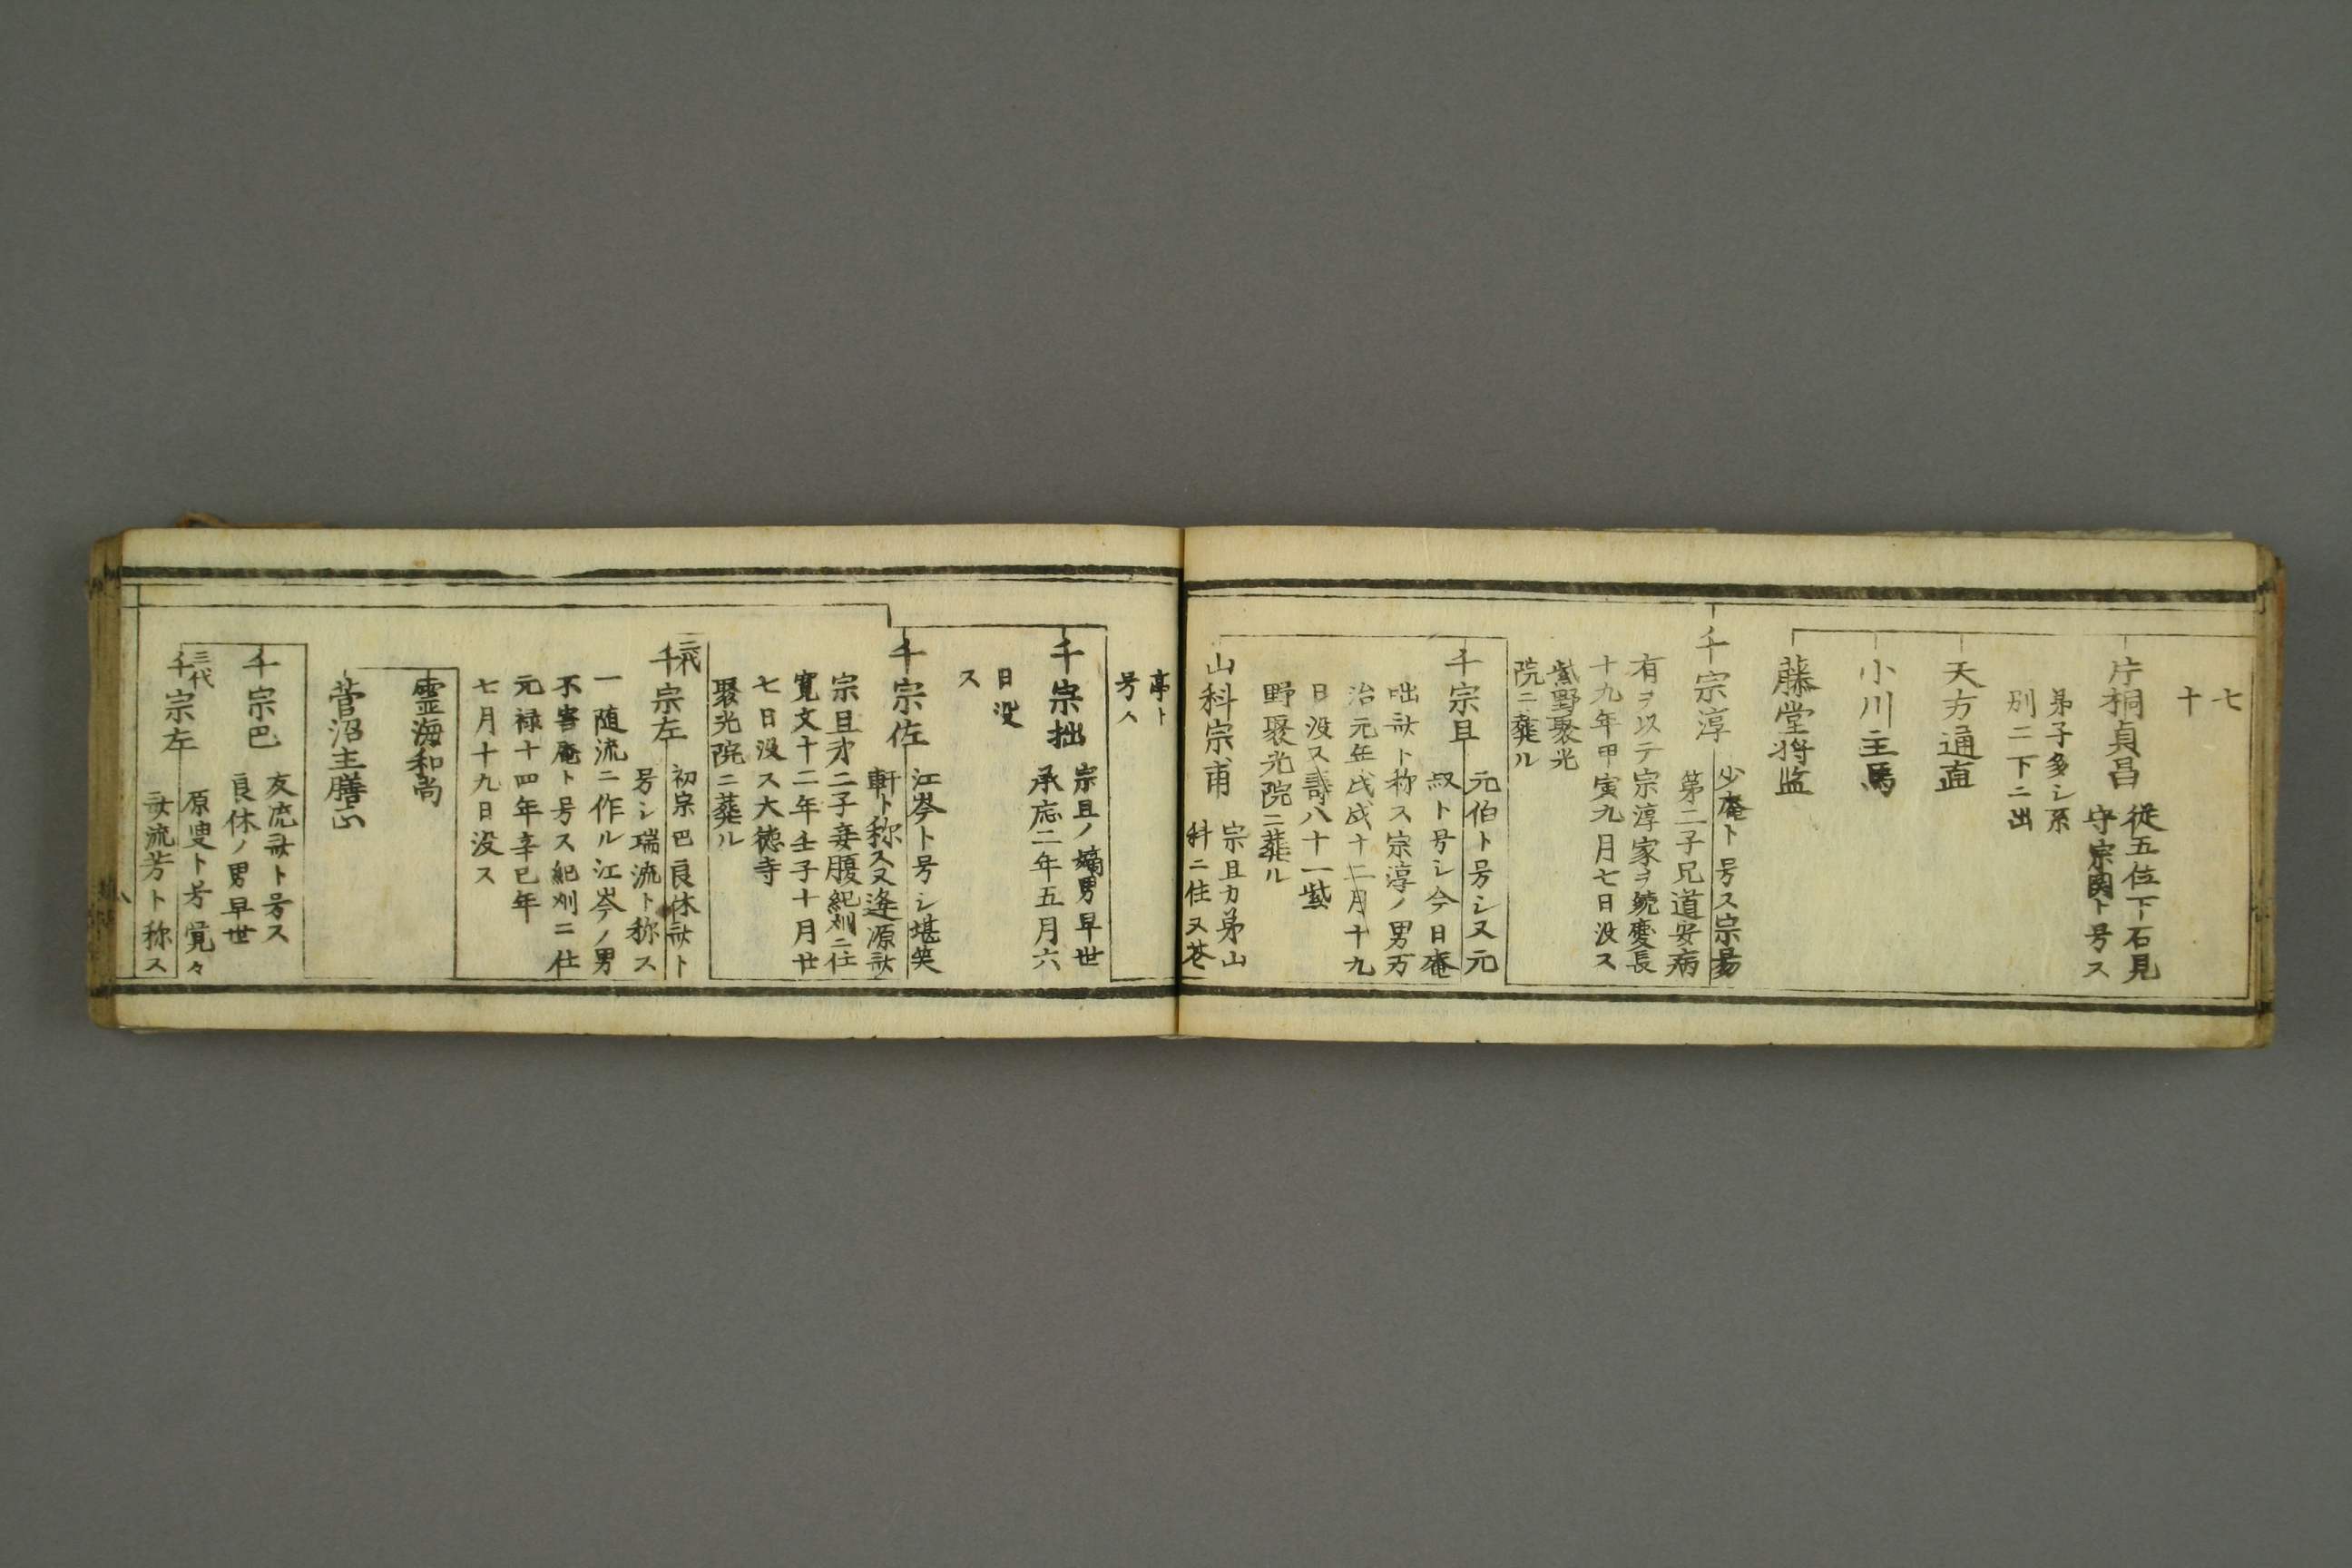 七
十
片桐貞昌
従五位下石見
守宗関ト号ス
弟子多シ系
別ニ下ニ出
天方通直
小川主馬
藤堂将监
千宗淳
少庵ト号ス宗易
第二子兄道安病
有ヲ以テ宗淳家ヲ続慶長
十九年甲寅九月七日没ス
紫野聚光
院ニ葬ル
千宗旦
元伯ト号シ又元
叔ト号シ今日庵
咄斎ト称ス宗淳ノ男万
治元年戊戌十二月十九
日没ス壽八十一紫
野聚光院ニ葬ル
山科宗甫
宗旦カ弟山
科ニ住又苍
亭ト
号ス
千宗拙
宗旦ノ嫡男早世
承応二年五月六
日没
ス
千宗佐
江岑ト号シ堪笑
軒ト称ス又逢源斎
宗旦才二子妾腹紀刕ニ仕
寛文十二年壬子十月廿
七日没ス大徳寺
聚光院ニ葬ル
二代
千宗左
初宗巴良休斎ト
号シ瑞流ト称ス
一随流ニ作ル江岑ノ男
不審庵ト号ス紀刕ニ仕
元禄十四年辛巳年
七月十九日没ス
霊海和尚
菅沼主膳正
千宗巴
友流斎ト号ス
良休ノ男早世
三代
千宗左
原叟ト号覚々
斎流芳ト称ス
八